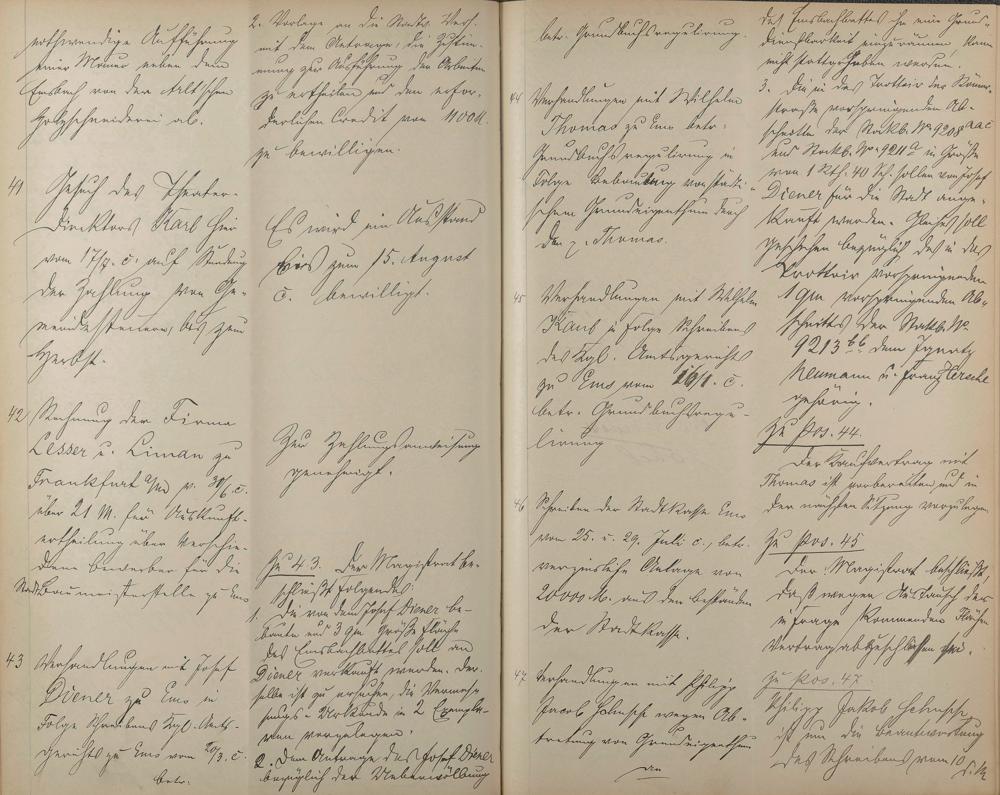 nothwendige Aufführung
einer Mauer neben dem
Emsbach von der Arlt'schen
Holzschneiderei ab.
41 Gesuch des Theater-
Direktors Karl hier
vom 17/7. c. auf Stundung
der Zahlung von Ge-
meindesteuern, bis zum
Herbst.
42 Rechnung der Firma
Lesser u. Liman zu
Frankfurt a/M p. 30/6. c.
über 21 M. für Auskunft-
ertheilung über verschie-
dene Bewerber für die
Stadtbaumeisterstelle zu Ems
43 Verhandlungen mit Josef
Diener zu Ems in
Folge Schreibens Kgl. Amts-
gerichts zu Ems vom 20/3. c.
betr.
2. Vorlage an die Stadtv. Vers.
mit dem Antrage, die Zustim-
mung zur Ausführung der Arbeiten
zu ertheilen und den erfor-
derlichen Credit von 1100 M.
zu bewilligen.
Es wird ein Ausstand
bis zum 15. August
c. bewilligt.
Zur Zahlungsanweisung
genehmigt.
Zu 43. Der Magistrat be-
schließt Folgendes:
1. Die von dem Josef Diener be-
baute und 3 qm große Fläche
des Emsbachbettes soll an
Diener verkauft werden. Der-
selbe ist zu ersuchen, die Vermes-
sungs-Urkunde in 2 Exempla-
ren vorzulegen.
2. Dem Antrage des Josef Diener
bezüglich der Ueberwölbung
betr. Grundbuchsregulirung.
44 Verhandlungen mit Wilhelm
Thomas zu Ems betr.
Grundbuchsregulirung in
Folge Bebauung von städti-
schem Grundeigenthum durch
den p. Thomas.
45 Verhandlungen mit Wilhelm
Kaul in Folge Schreibens
des Kgl. Amtsgerichts
zu Ems vom 16/1. c.
betr. Grundbuchsregu-
lirung
46 Schreiben der Stadtkasse Ems
vom 25. u. 29. Juli c., betr.
verzinsliche Anlage von
20000 M. aus den Beständen
der Stadtkasse.
47 Verhandlungen mit Philipp
Jacob wegen Ab-
tretung von Grundeigenthum
an
des Emsbachbettes ihm eine Grund-
dienstbarkeit einzuräumen kann
nicht stattgegeben werden.
3. Die in das Trottoir der Römer-
straße vorspringenden Ab-
schnitte der Stockb. No 9208 aac
und Stockb. No 9211 a in Größe
von 1 Rth. 40 Sch. sollen von Josef
Diener für die Stadt ange-
kauft werden. Gleiches soll
geschehen bezüglich des in das
Trottoir vorspringenden
1 qm vorspringenden Ab-
schnittes der Stockb. No
9213 bb dem Ignatz
Neumann u. Franz
gehörig.
Zu Pos. 44.
Der Kaufvertrag mit
Thomas ist vorbereiten und in
der nächsten Sitzung vorzulegen.
Zu Pos. 45
Der Magistrat beschließt,
daß wegen Austausch der
in Frage kommenden Flächen
Vertrag abgeschlossen sei.
Zu Pos. 47.
Philipp Jakob
ist um die Beantwortung
des Schreibens vom 10
d. M.